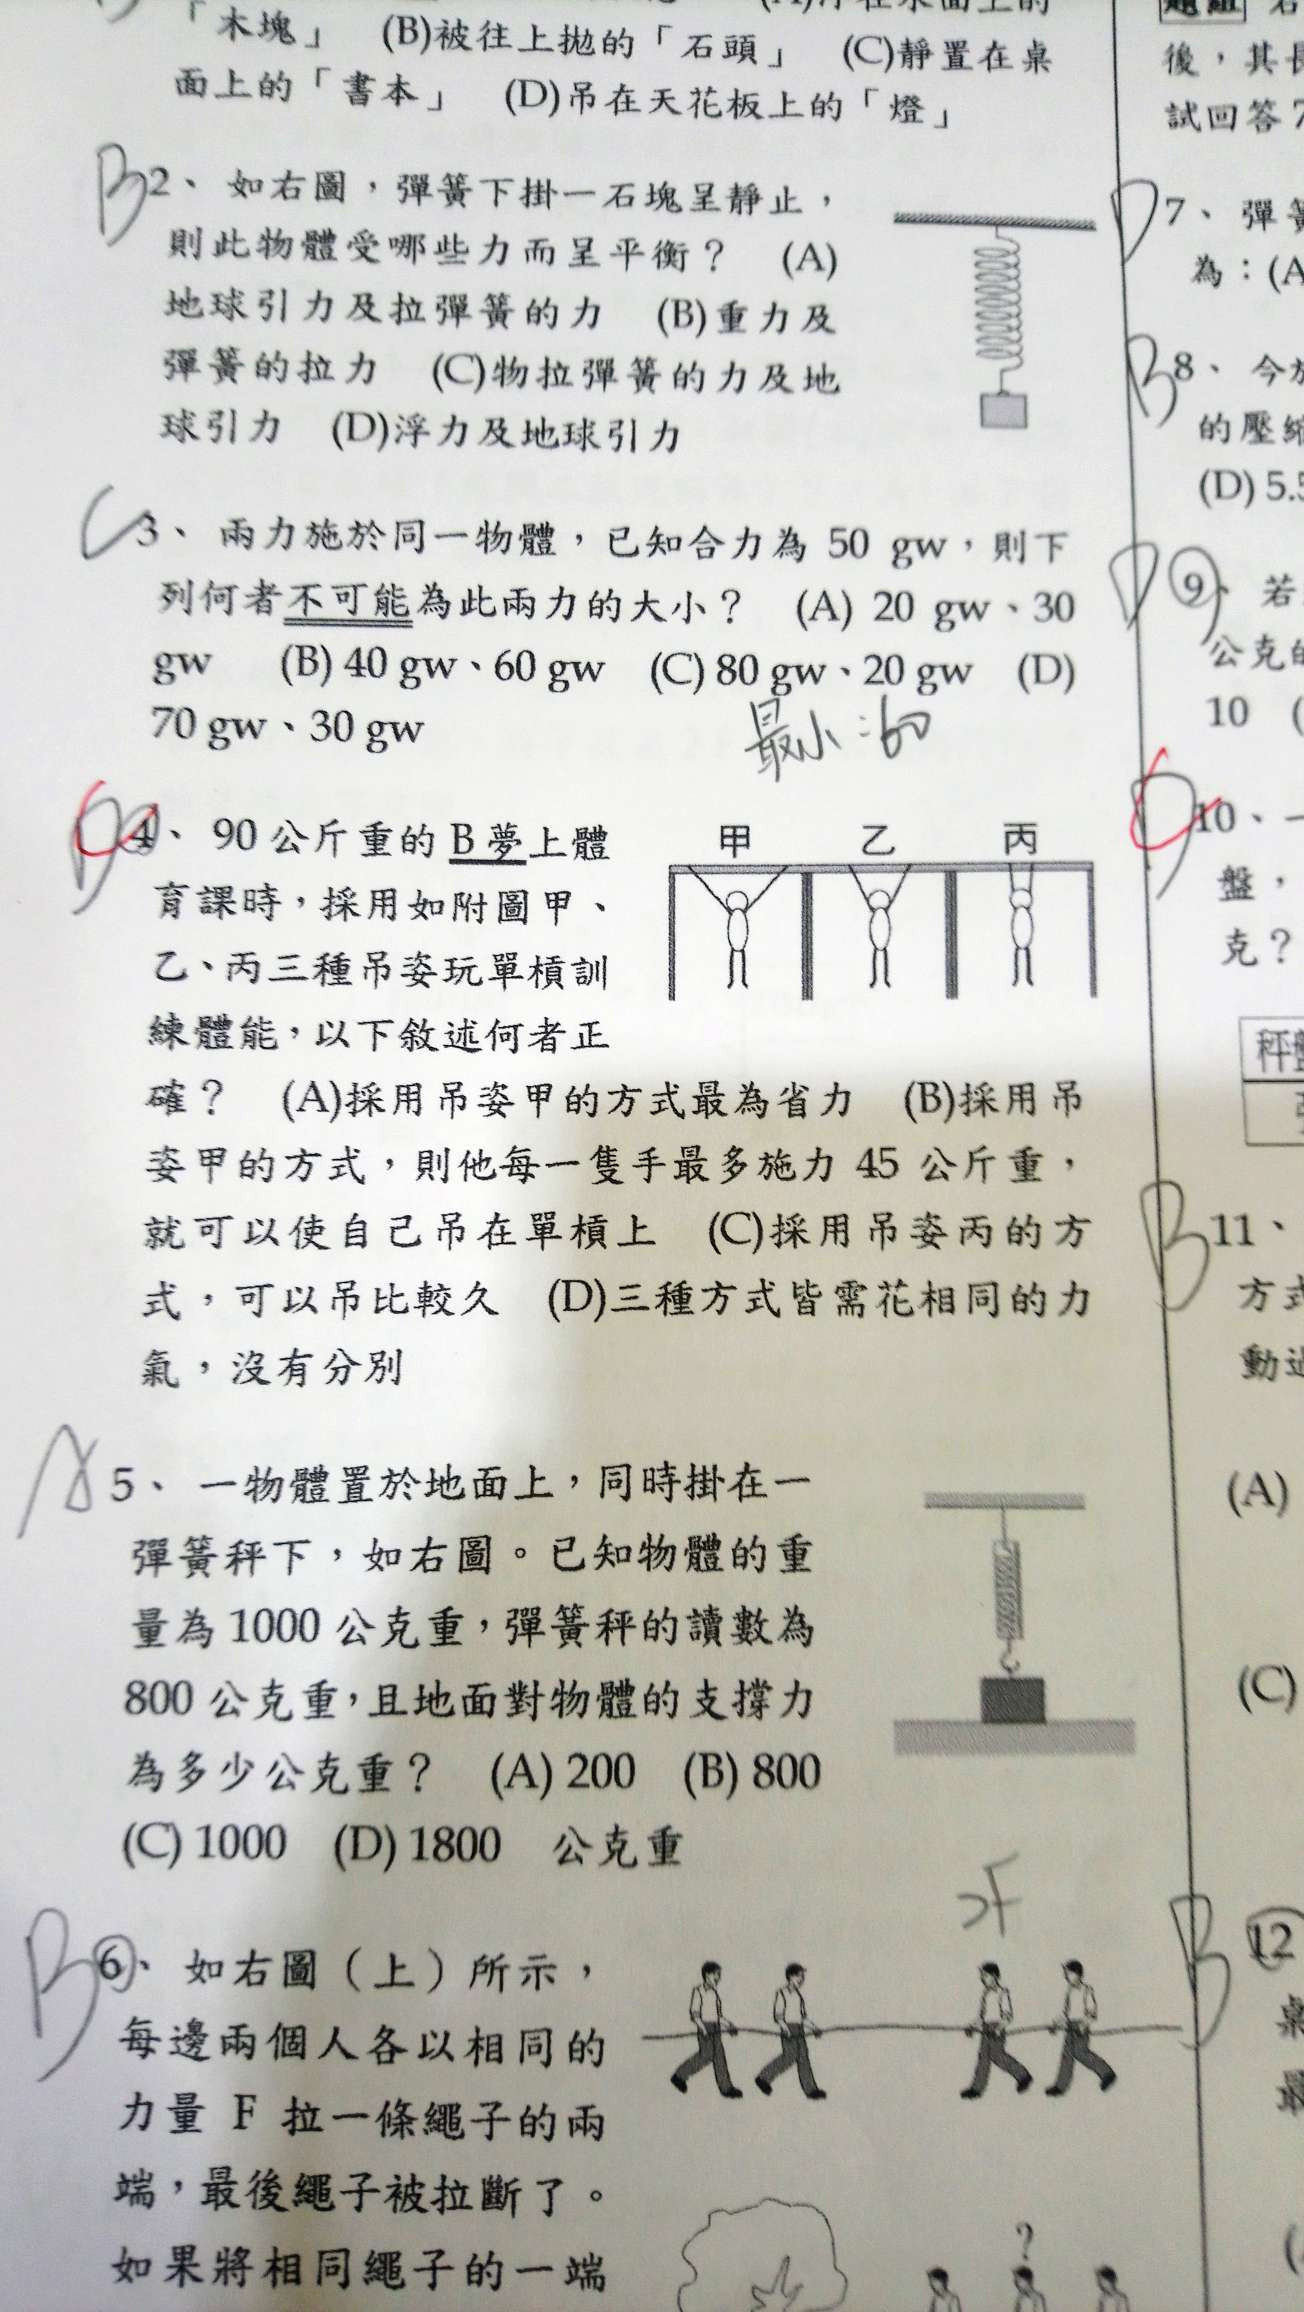 「木塊」 (B)被往上拋的「石頭」 (C)靜置在桌
面上的「書本」 (D)吊在天花板上的「燈」
B 2、 如右圖，彈簧下掛一石塊呈靜止，
則此物體受哪些力而呈平衡？ (A)
地球引力及拉彈簧的力 (B)重力及
彈簧的拉力 (C)物拉彈簧的力及地
球引力 (D)浮力及地球引力
C 3、 兩力施於同一物體，已知合力為 50 gw，則下
列何者不可能為此兩力的大小？ (A) 20 gw、30
gw (B) 40 gw、60 gw (C) 80 gw、20 gw (D)
70 gw、30 gw
最小:60
4、 90 公斤重的 B 夢上體
育課時，採用如附圖甲、
乙、丙三種吊姿玩單槓訓
練體能，以下敘述何者正
確？ (A)採用吊姿甲的方式最為省力 (B)採用吊
姿甲的方式，則他每一隻手最多施力 45 公斤重，
就可以使自己吊在單槓上 (C)採用吊姿丙的方
式，可以吊比較久 (D)三種方式皆需花相同的力
氣，沒有分別
甲 乙 丙
A 5、 一物體置於地面上，同時掛在一
彈簧秤下，如右圖。已知物體的重
量為 1000 公克重，彈簧秤的讀數為
800 公克重，且地面對物體的支撐力
為多少公克重？ (A) 200 (B) 800
(C) 1000 (D) 1800 公克重
B 6、 如右圖（上）所示，
每邊兩個人各以相同的
力量 F 拉一條繩子的兩
端，最後繩子被拉斷了。
如果將相同繩子的一端
2F
?
後，其
試回答
D 7、 彈
為：(A
B 8、 今
的壓縮
(D) 5.5
D 9、 若
公克
10 (
10、
盤，
克？
秤
B 11、
方式
動
(A)
(C)
B 12
最